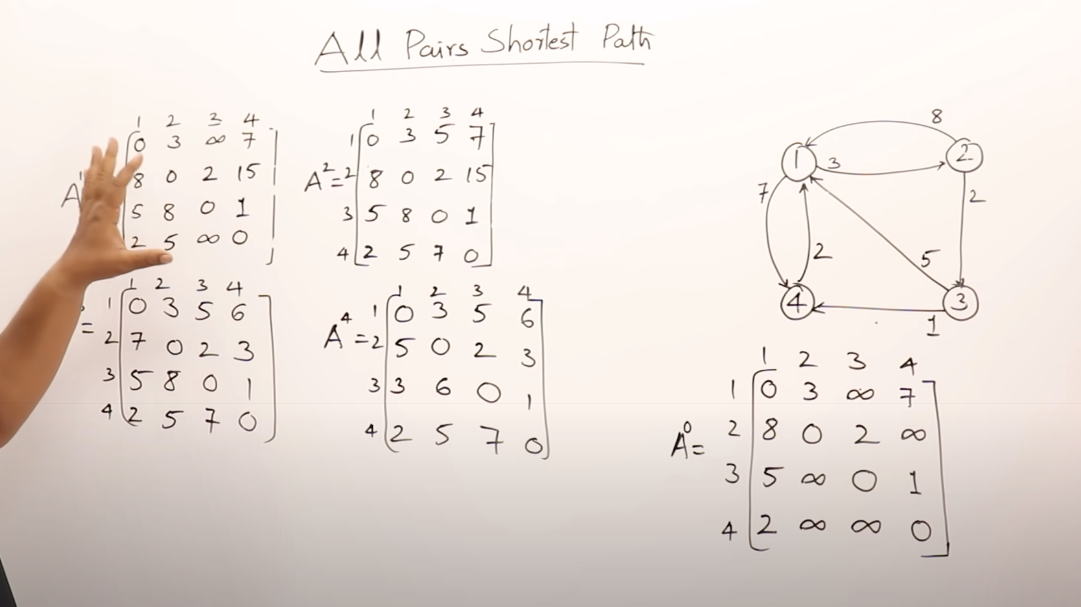 All Pairs Shortest Path
1 2 3 4
0 3 ∞ 7
A 8 0 2 15
5 8 0 1
2 5 ∞ 0
1 2 3 4
1 0 3 5 7
A² = 2 8 0 2 15
3 5 8 0 1
4 2 5 7 0
1 2 3 4
1 0 3 5 6
= 2 7 0 2 3
3 5 8 0 1
4 2 5 7 0
1 2 3 4
1 0 3 5 6
A⁴ = 2 5 0 2 3
3 3 6 0 1
4 2 5 7 0
8
1 3 2
7 2
2 5
4 3
1
1 2 3 4
1 0 3 ∞ 7
2 8 0 2 ∞
A⁰ =
3 5 ∞ 0 1
4 2 ∞ ∞ 0